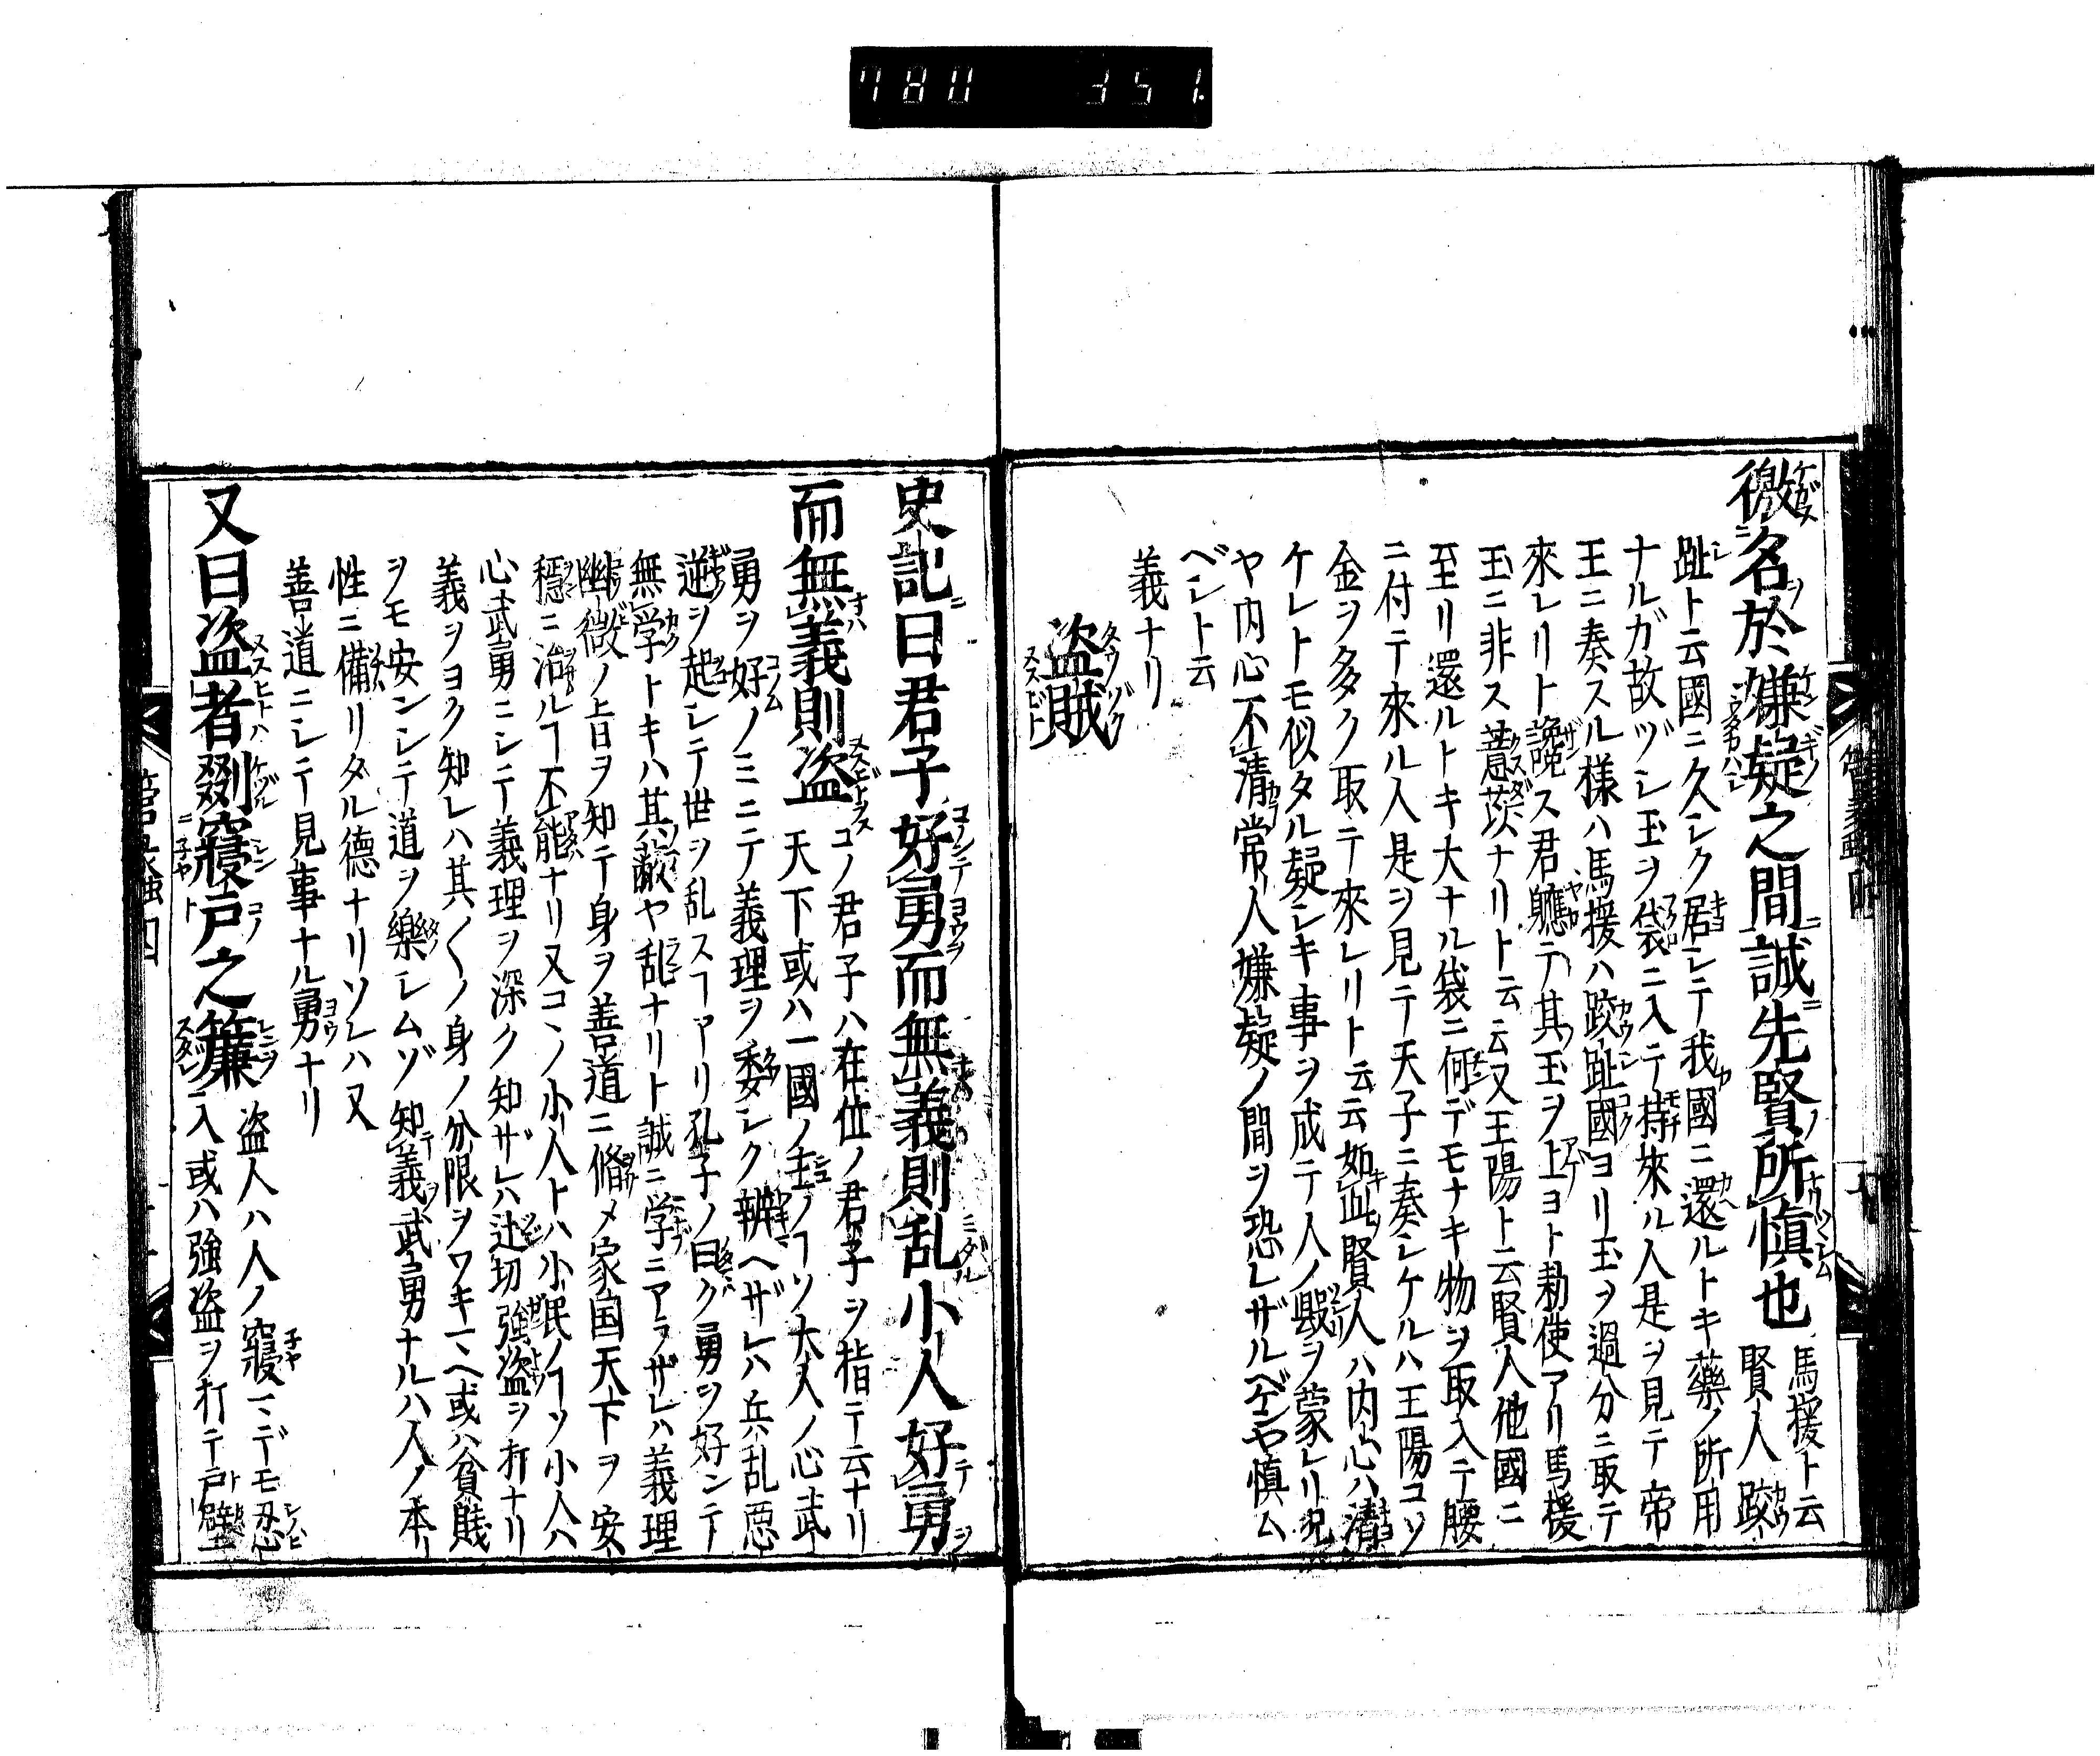 780 351
徼名於嫌疑之間誠先賢所慎也 馬援ト云
賢人跤
趾ト云國ニ久シク居シテ我國ニ還ルトキ藥ノ所用
ナルガ故ヅシ玉ヲ袋ニ入テ持來ル人是ヲ見テ帝
王ニ奏スル様ハ馬援ハ跤趾國ヨリ玉ヲ過分ニ取テ
來レリト讒ス君軈テ其玉ヲ上ヨト勅使アリ馬援
玉ニ非ス薏苡ナリト云云又王陽ト云賢人他國ニ
至リ還ルトキ大ナル袋ニ何デモナキ物ヲ取入テ腰
ニ付テ來ル人是ヲ見テ天子ニ奏シケルハ王陽コソ
金ヲ多ク取テ來レリト云云如此賢人ハ内心ハ潔
ケレトモ似タル疑シキ事ヲ成テ人ノ毀ヲ蒙レリ况
ヤ内心不清常人嫌疑ノ間ヲ恐レザルベケンヤ慎ム
ベシト云
義ナリ
盗賊
史記曰君子好勇而無義則乱小人好勇
而無義則盗 コノ君子ハ在位ノ君子ヲ指テ云ナリ
天下或ハ一國ノ主ノヿソ大人ノ心武
勇ヲ好ノミニテ義理ヲ委シク辨ヘザレハ兵乱悪
逆ヲ起シテ世ヲ乱スヿアリ孔子ノ曰ク勇ヲ好ンテ
無学トキハ其蔽ヤ乱ナリト誠ニ学ニアラザレハ義理
幽微ノ上日ヲ知テ身ヲ善道ニ脩メ家国天下ヲ安
穏ニ治ルヿ不能ナリ又コヽノ小人トハ小民ノヿソ小人ハ
心武勇ニシテ義理ヲ深ク知ザレハ辻切強盗ヲ打ナリ
義ヲヨク知レハ其〱ノ身ノ分限ヲワキマヘ或ハ貧賎
ヲモ安ンシテ道ヲ樂シムゾ知義武勇ナルハ人ノ本
性ニ備リタル德ナリソレハ又
善道ニシテ見事ナル勇ナリ
又曰盗者剟寢戸之簾 盗人ハ人ノ寢マデモ忍ビ
入或ハ強盗ヲ打テ戸壁